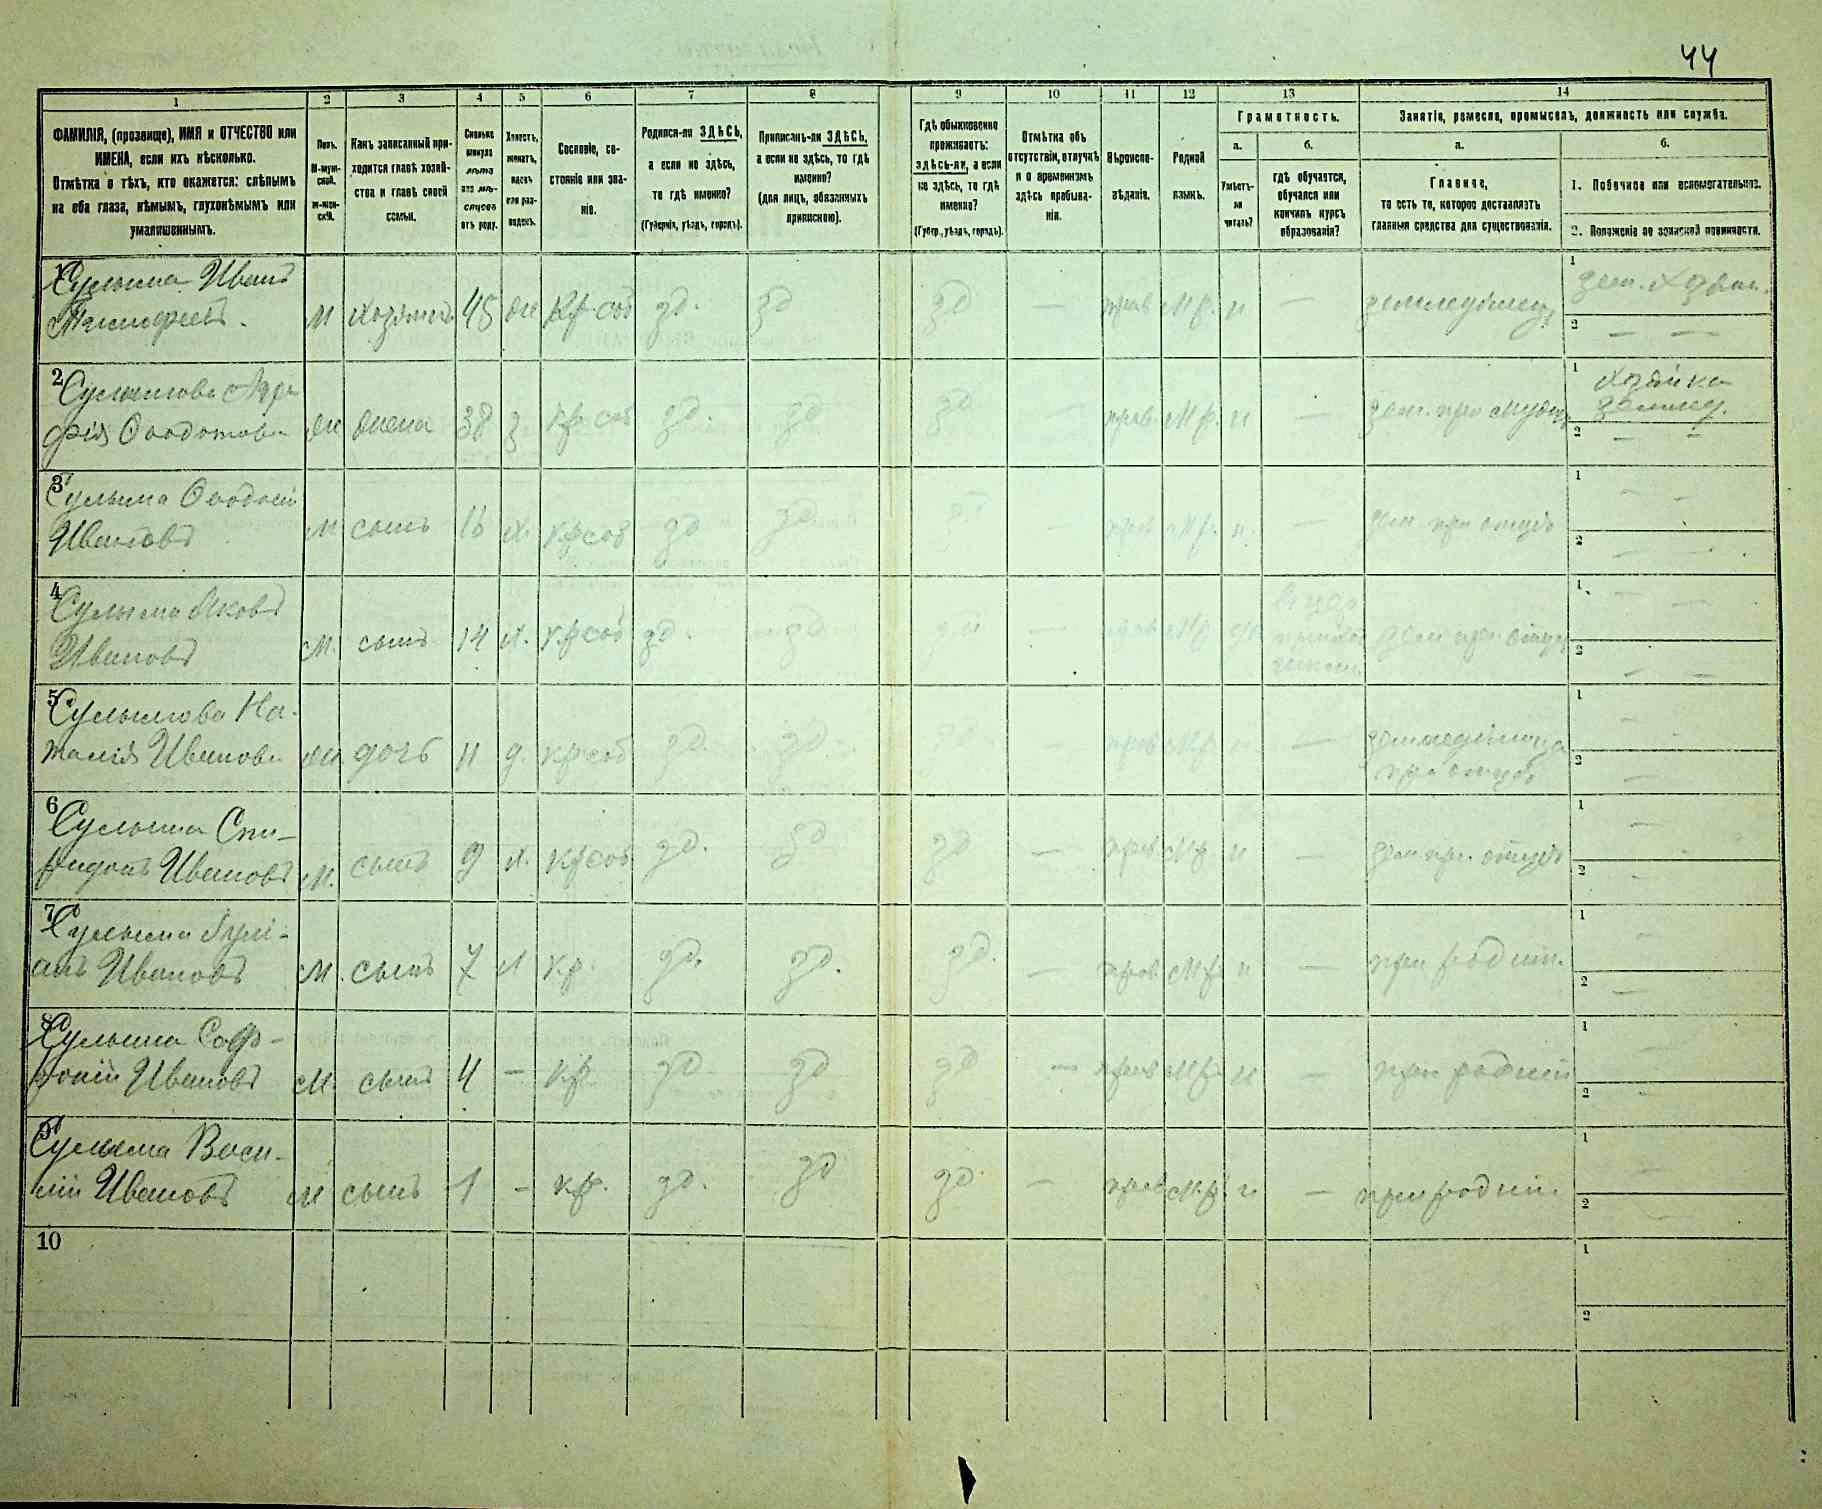 44
1 2 3 4 5 6 7 8 9 10 11 12 13 14
ФАМИЛІЯ, (прозвище), ИМЯ и ОТЧЕСТВО или
ИМЕНА, если ихъ нѣсколько.
Отмѣтка о тѣхъ, кто окажется: слѣпымъ
на оба глаза, нѣмымъ, глухонѣмымъ или
умалишеннымъ.
Полъ.
М-муж-
ской.
Ж-жен-
скій.
Какъ записанный при-
ходится главѣ хозяй-
ства и главѣ своей
семьи.
Сколько
минуло
лѣтъ
или мѣ-
сяцевъ
отъ роду.
Холостъ,
женатъ,
вдовъ
или раз-
веденъ.
Сословіе, со-
стояніе или зва-
ніе.
Родился-ли ЗДѢСЬ,
а если не здѣсь,
то гдѣ именно?
(Губернія, уѣздъ, городъ).
Приписанъ-ли ЗДѢСЬ,
а если не здѣсь, то гдѣ
именно?
(для лицъ, обязанныхъ
припискою).
Гдѣ обыкновенно
проживаетъ:
здѣсь-ли, а если
не здѣсь, то гдѣ
именно?
(Губер., уѣздъ, городъ).
Отмѣтка объ
отсутствіи, отлучкѣ
и о временномъ
здѣсь пребыва-
ніи.
Вѣроиспо-
вѣданіе.
Родной
языкъ.
Грамотность.
а.
Умѣетъ-
ли
читать?
б.
гдѣ обучается,
обучался или
кончилъ курсъ
образованія?
Занятіе, ремесло, промыселъ, должность или служба.
а.
Главное,
то есть то, которое доставляетъ
главныя средства для существованія.
б.
1. Побочное или вспомогательное.
2. Положеніе по воинской повинности.
1 Сулыма Иванъ
Тимофеевъ. М хозяинъ 45 ж Кр соб зд. зд зд — прав. Мр. н — земледѣлец
2 Сулымова
Феодотова ж жена 38 з Кр соб зд. зд зд — прав. Мр. н — зем. при мужѣ
хозяйка
3 Сулыма Феодосій
Ивановъ М сынъ 16 х. Кр соб зд зд зд — прав Мр. н. — зем при отцѣ
4 Сулыма Яковъ
Ивановъ М. сынъ 14 х. Кр соб зд. зд — Мр зем при отцѣ
5 Сулымова На-
талія Иванова ж дочь 11 д. Кр соб зд. зд. зд — прав Мр н. — земледѣлица
при отцѣ
6 Сулыма Спи-
ридонъ Ивановъ М. сынъ 9 х. Кр соб зд. зд зд — прав. Мр н — зем пр. отцѣ
7 Сулыма
Ивановъ М. сынъ 7 х кр. зд. зд. зд. — прав. Мр н — при родит.
8 Сулыма Соф-
роній Ивановъ М. сынъ 4 — кр зд зд зд — прав Мр. н — при родит
9 Сулыма Васи-
лій Ивановъ М сынъ 1 — кр. зд. зд зд. — прав Мр. н — при родит.
10